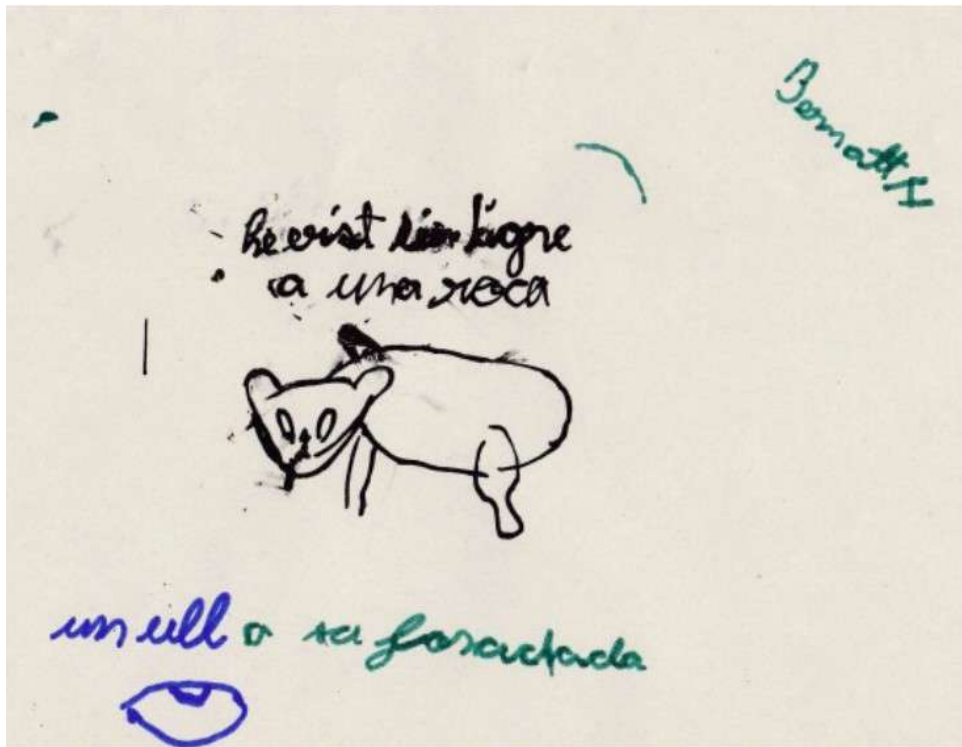 Bernat H
he vist un tigre
a una roca
un ull a sa foradada